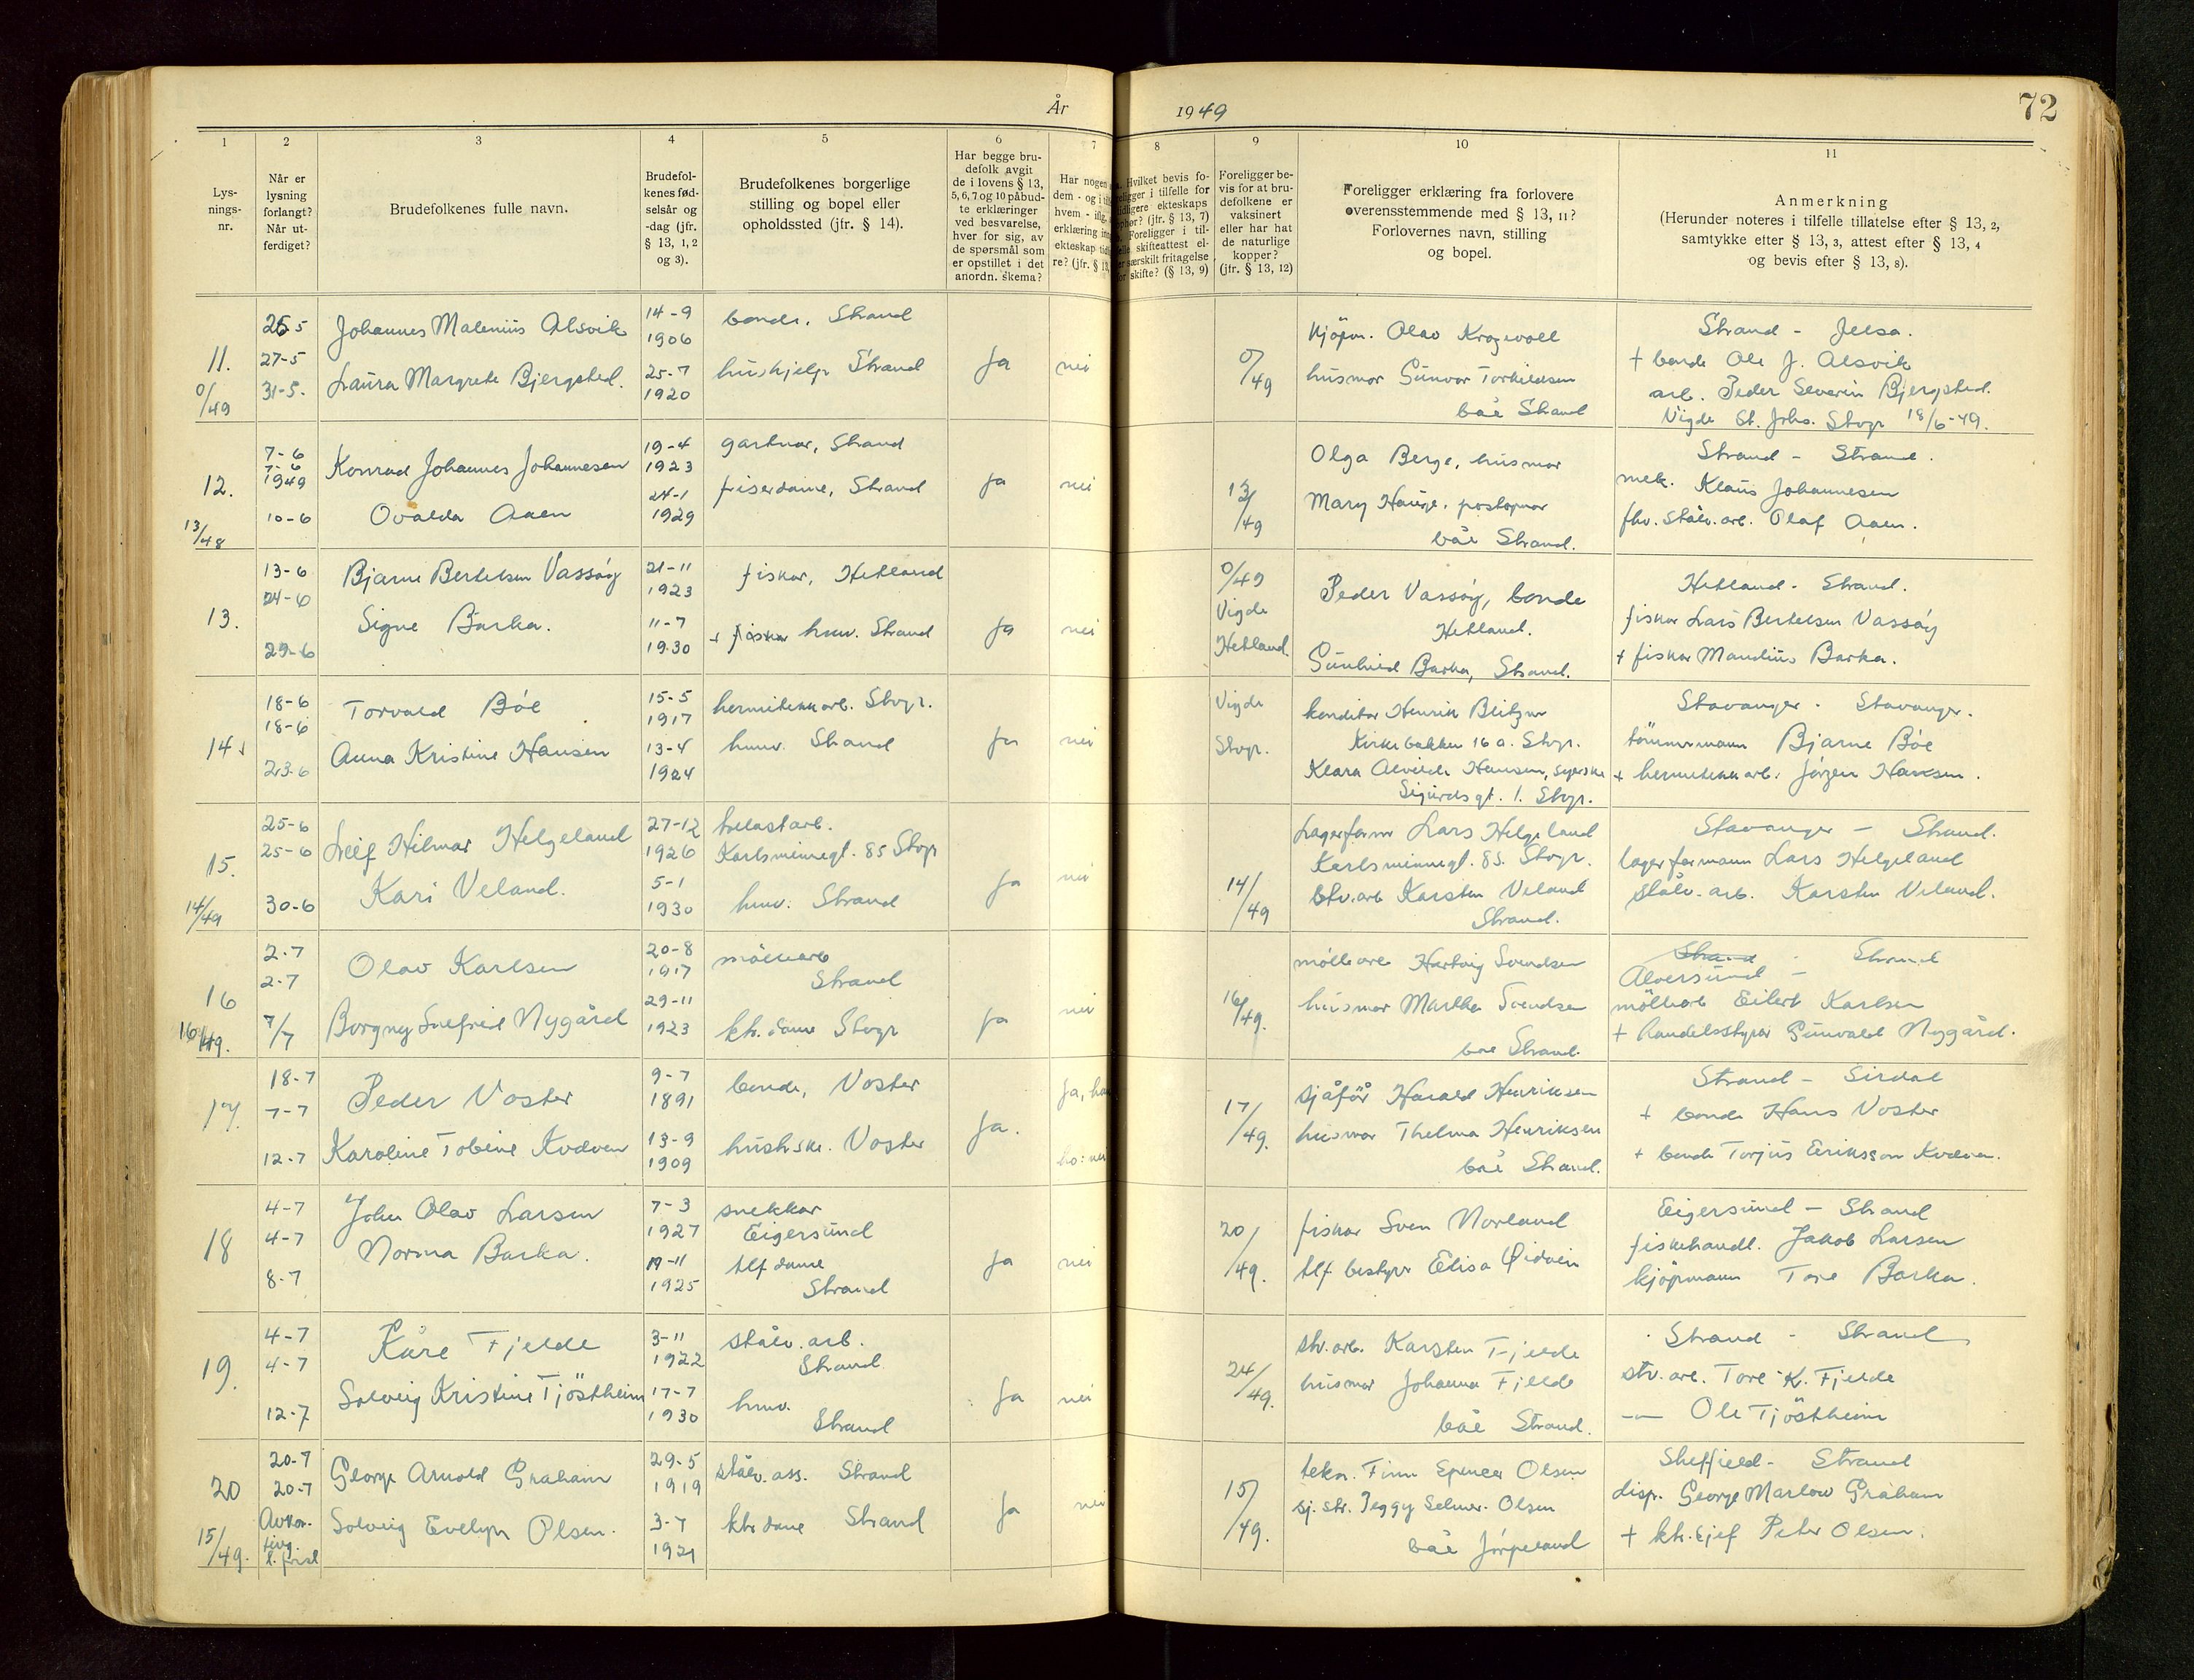 År
1949
72
1
2
3
4
5
6
7
8
9
10
11
Lys-
nings-
nr.
Når er
lysning
forlangt?
Når ut-
ferdiget?
Brudefolkenes fulle navn.
Brudefol-
kenes fød-
selsår og
-dag (jfr.
§ 13, 1, 2
og 3).
Brudefolkenes borgerlige
stilling og bopel eller
opholdssted (jfr. § 14).
Har begge bru-
defolk avgit
de i lovens § 13,
5, 6, 7 og 10 påbud-
te erklæringer
ved besvarelse,
hver for sig, av
de spørsmål som
er opstillet i det
anordn. skema?
Har nogen
dem - og i
hvem -
erklæring
ekteskap
re? (jfr. §
Hvilket bevis fo-
religger i tilfelle for
tidligere ekteskaps
ophør? (jfr. § 13, 7)
Foreligger i til-
felle skifteattest el-
ler særskilt fritagelse
for skifte? (§ 13, 9)
Foreligger be-
vis for at bru-
defolkene er
vaksinert
eller har hat
de naturlige
kopper?
(jfr. § 13, 12)
Foreligger erklæring fra forlovere
overensstemmende med § 13, 11?
Forlovernes navn, stilling
og bopel.
Anmerkning
(Herunder noteres i tilfelle tillatelse efter § 13, 2,
samtykke efter § 13, 3, attest efter § 13, 4
og bevis efter § 13, 8).
11.
0/49
27-5
31-5.
Johannes Malenius Alsvik
Laura Margrete Bjergsted.
14-9
1906
25-7
1920
bonde, Strand
hushjelp Strand
Ja
nei
0/49
Kjöpm. Olav Kragevoll
husmor Gunvor Torkildsen
båe Strand
Strand - Jelsa.
+ bonde Ole J. Alsvik
arb. Peder Severin Bjergsted.
Vigde St. Johs. Stvgr 18/6-49.
12.
13/48
7-6
7-6
1949
10-6
Konrad Johannes Johannesen
Ovalda Aaen
19-4
1923
24-1
1929
gartnar, Strand
friserdame, Strand
Ja
nei
13/49
Olga Berge, husmor
Mary Hauge, postopnar
båe Strand.
Strand - Strand.
mek. Klaus Johannesen
fhv. stålv. arb. Olaf Aaen.
13.
13-6
24-6
29-6
Bjarne Bertelsen Vassöy
Signe Barka.
21-11
1923
11-7
1930
fiskar, Hetland
+ fiskar hmv. Strand
Ja
nei
0/49
Vigde
Hetland.
Peder Vassöy, bonde
Hetland.
Gunhild Barka, Strand.
Hetland - Strand.
fiskar Lars Bertelsen Vassöy
+ fiskar Mandius Barka.
14.
18-6
18-6
23-6
Torvald Böe
Anna Kristine Hansen
15-5
1917
13-4
1924
hermetikkarb. Stvgr.
hmv. Strand
Ja
nei
Vigde
Stvgr.
konditor Henrik Blitzner
Kirkebakken 16 a. Stvgr.
Klara Alvilde Hansen, syerske
Sigurdsgt. 1. Stvgr.
Stavanger - Stavanger.
tömmermann Bjarne Böe
+ hermetikkarb. Jörgen Hansen.
15.
14/49
25-6
25-6
30-6
Leif Hilmar Helgeland
Kari Veland.
27-12
1926
5-1
1930
Karlsminnegt. 85 Stvgr
hmv. Strand
Ja
nei
14/49
Lagerform Lars Helgeland
Karlsminnegt. 85. Stvgr.
stv. arb Karsten Veland
Strand.
Stavanger - Strand.
lagerformann Lars Helgeland
stålv. arb. Karsten Veland.
16
16/49.
2-7
2-7
7/7
Olav Karlsen
Borgny Snefrid Nygård
20-8
1917
29-11
1923
möllearb
Strand
ktr. dame Stvgr
Ja
nei
16/49.
möllearb Hartvig Svendsen
husmor Martha Svendsen
båe Strand.
Strand - Strand
Alversund -
möllearb Eilert Karlsen
+ handelsstyrar Gunvald Nygård.
17.
18-7
7-7
12-7
Peder Voster
Karoline Tobine Kvdven
9-7
1891
13-9
1909
bonde, Voster
hushsk. Voster
Ja.
Ja, han
ho: nei
17/49.
sjåför Harald Henriksen
husmor Thelma Henriksen
båe Strand.
Strand - Sirdal
+ bonde Hans Voster
+ bonde Torjus Eriksson
18
4-7
4-7
8-7
John Olav Larsen
Norma Barka.
7-3
1927
19-11
1925
snekkar
Eigersund
tlf dame
Strand
Ja
nei
20/49.
fiskar Sven Norland
tlf bestyrer Elisa
Eigersund - Strand
fiskehandl. Jakob Larsen
kjöpmann Tore Barka.
19.
4-7
4-7
12-7
Kåre Fjelde
Solveig Kristine Tjöstheim
3-11
1922
17-7
1930
stålv. arb.
Strand
hmv.
Strand
Ja
nei
24/49.
stv. arb. Karsten Fjelde
husmor Johanna Fjelde
båe Strand.
Strand - Strand
stv. arb. Tore K. Fjelde
-"- Ole Tjöstheim
20
15/49.
20-7
20-7
Avkor-
ting
l. frist
George Arnold Graham
Solveig Evelyn Olsen.
29-5
1919
3-7
1921
stålv. ass. Strand
ktr dame Strand
Ja
nei
15/49.
tekn. Finn Spencer Olsen
Peggy Selmer-Olsen
båe Jörpeland
Sheffield - Strand
disp. George Marlow Graham
+ ktr. sjef Peter Olsen.